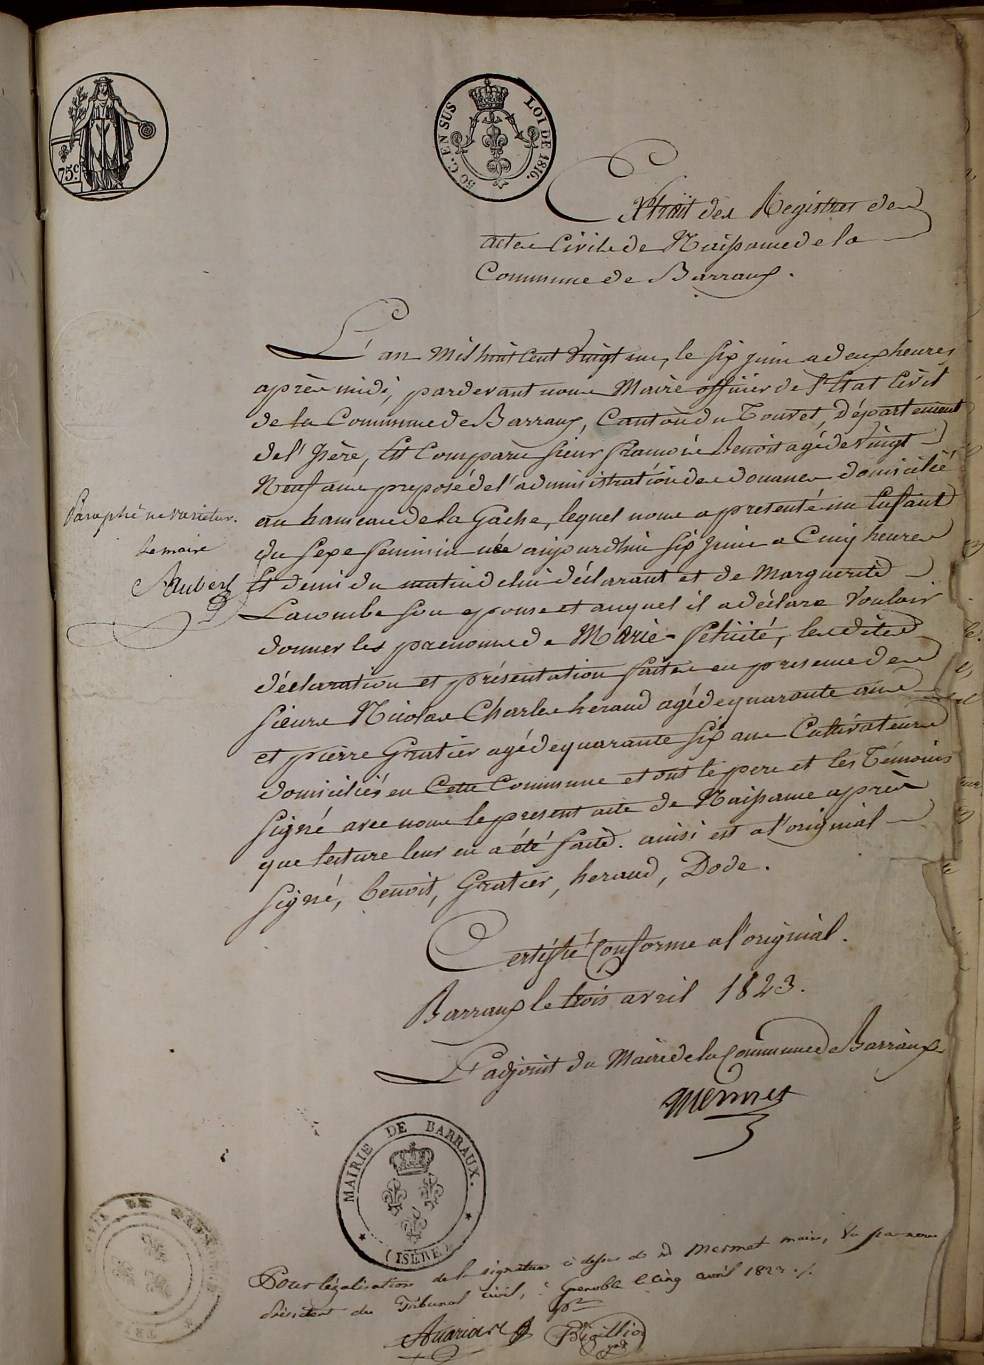 75c
50 C. EN SUS LOI DE 1816.
Extrait des Registres des
actes Civils de Naissance de la
Commune de Barraux.
L'an Mil huit Cent vingt un, le six juin a deux heures
après midi, pardevant nous Maire officier de l'État Civil
de la Commune de Barraux, Canton du Touvet, Département
de l'Isère, Est Comparu sieur francois Benoit agé de vingt
Neuf ans preposé de l'administration des douanes domicilié
au hameau de la Gache, lequel nous a presenté un Enfant
du sexe feminin née aujourdhui six juin a Cinq heures
Et demi du matin de lui déclarant et de Marguerite
Lacombe son epouse et auquel il a déclaré vouloir
donner les prenoms de Marie-felicité, les dites
déclaration et présentation faites en presence des
sieurs Nicolas Charles heraud agé de quarante ans
et pierre Gratier agé de quarante six ans Cultivateurs
domiciliés en Cette Commune et ont le pere et les Témoins
signé avec nous le present acte de Naissance après
que lecture leur en a été faite. ainsi est a l'original
signé, benoit, Gratier, heraud, Dode.
Paraphé ne varietur.
Le maire
Aubert
Certifié Conforme a l'original.
Barraux le trois avril 1823.
L'adjoint du Maire de la Commune de Barraux
Mermet
MAIRIE DE BARRAUX.
(ISÈRE)
Pour légalisation de la signature ci dessus de Mr Mermet maire, par nous
président du Tribunal civil, Grenoble le cinq avril 1823